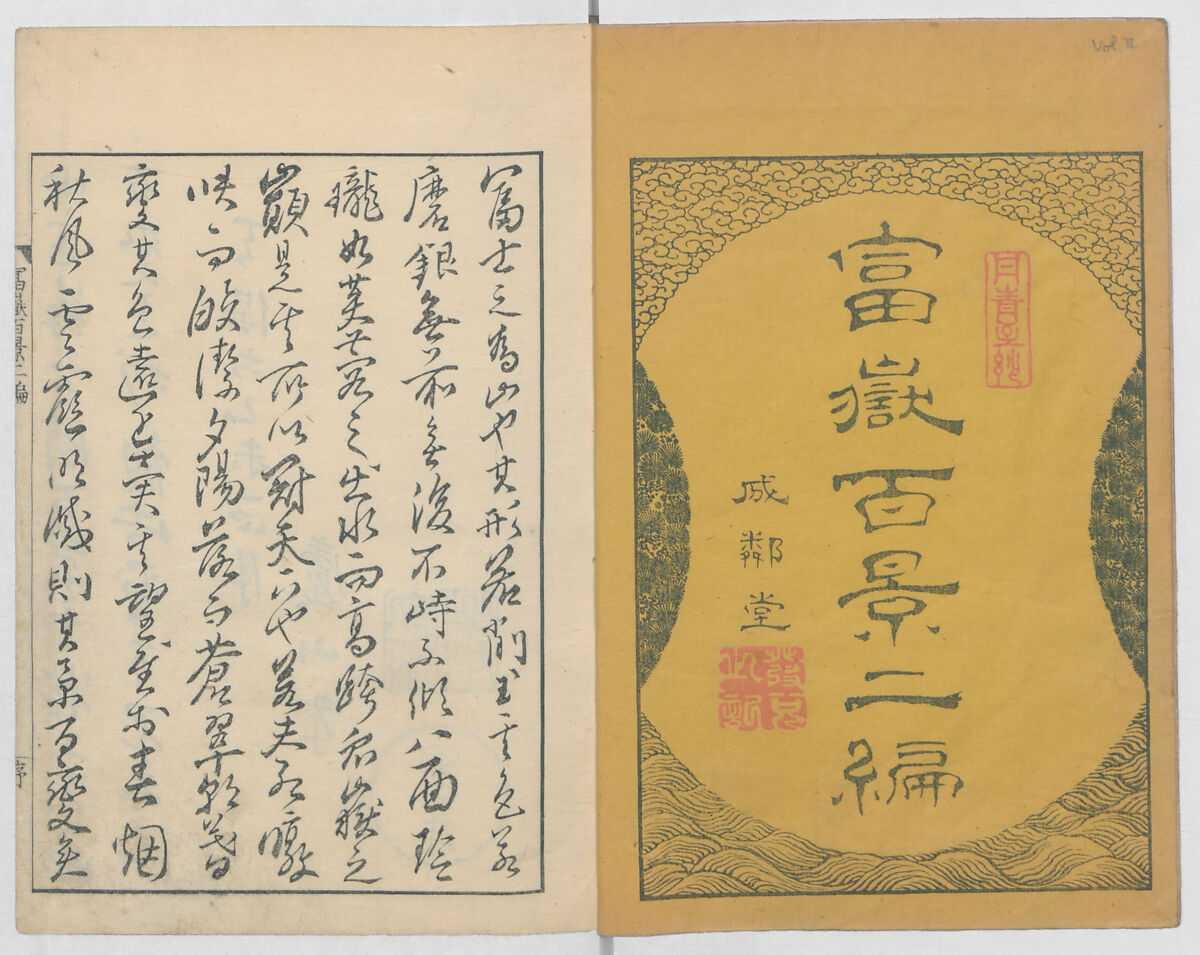 Vol. II
富嶽百景二編
成鄰堂
富士之為山也其形若削玉其色若
磨銀無前無後不峙不傾八面玲
瓏如芙蓉之出水而高跨衆山嶽之
巔是其所以冠天下也若夫紅暾
映而皎潔夕陽落而蒼翠朝暮
變其色遠近異其望至於春烟
秋風雲靄明滅則其景百變矣
富嶽百景二編
序